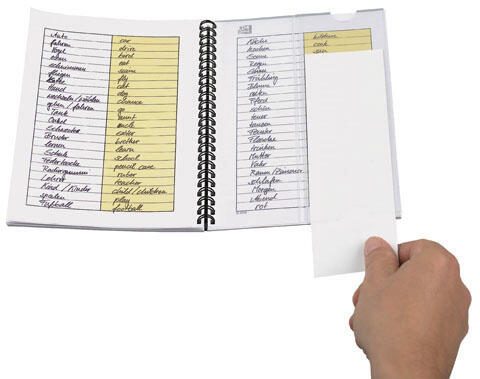 Auto car
fahren drive
Vogel bird
essen eat
schwimmen swim
fliegen fly
Katze cat
Hund dog
gehen / fahren go
Tante aunt
Onkel uncle
Schwester sister
Bruder brother
lernen learn
Schule school
Federtasche pencil case
Radiergummi ruber
Lehrer teacher
Kind / Kinder child / children
spielen play
Fußball football
Küche kitchen
kochen cook
Sonne sun
Regen
Schnee
Frühling
Blume
reiten
Pferd
schön
teuer
tanzen
Fenster
Flasche
trinken
Mutter
Vater
Raum / Zimmer
schlafen
Morgen
Abend
rot